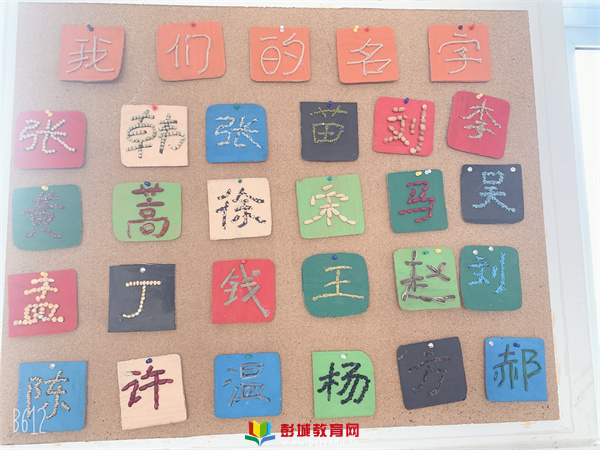 我们的名字
张韩张苗刘李
黄蒿徐宋马吴
孟丁钱王赵刘
陈许温杨方郝
B612
彭城教育网